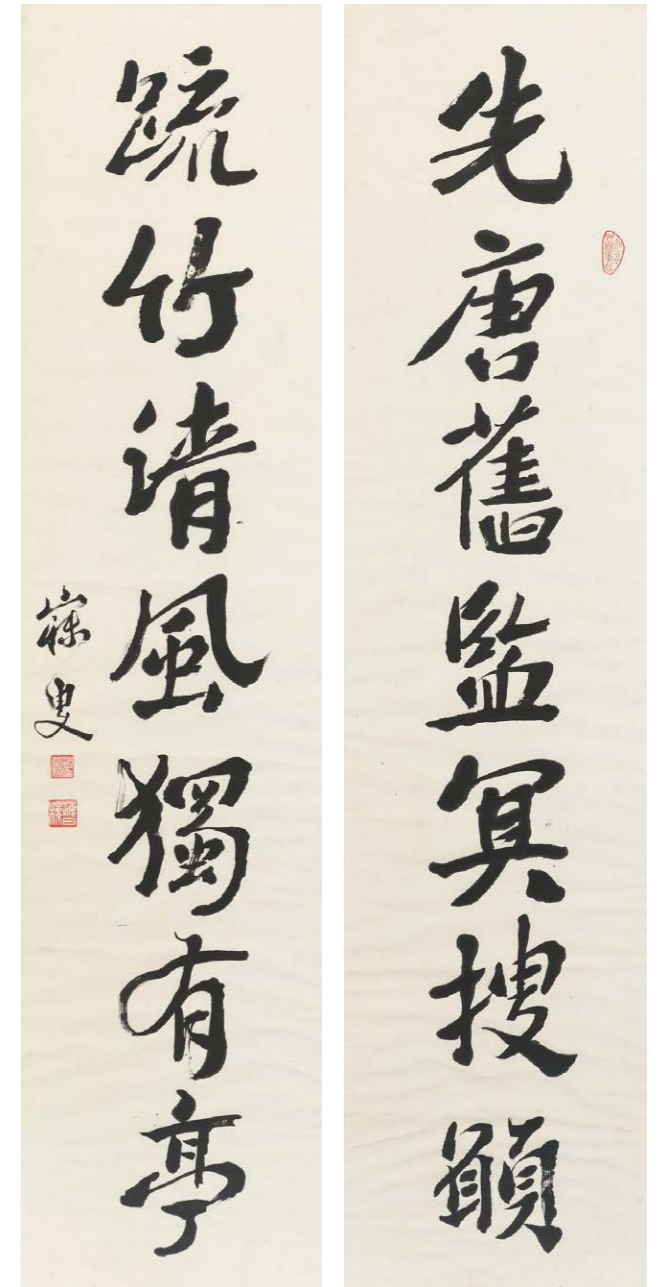 先唐舊監冥搜賾
䟽竹清風獨有亭
寐叟